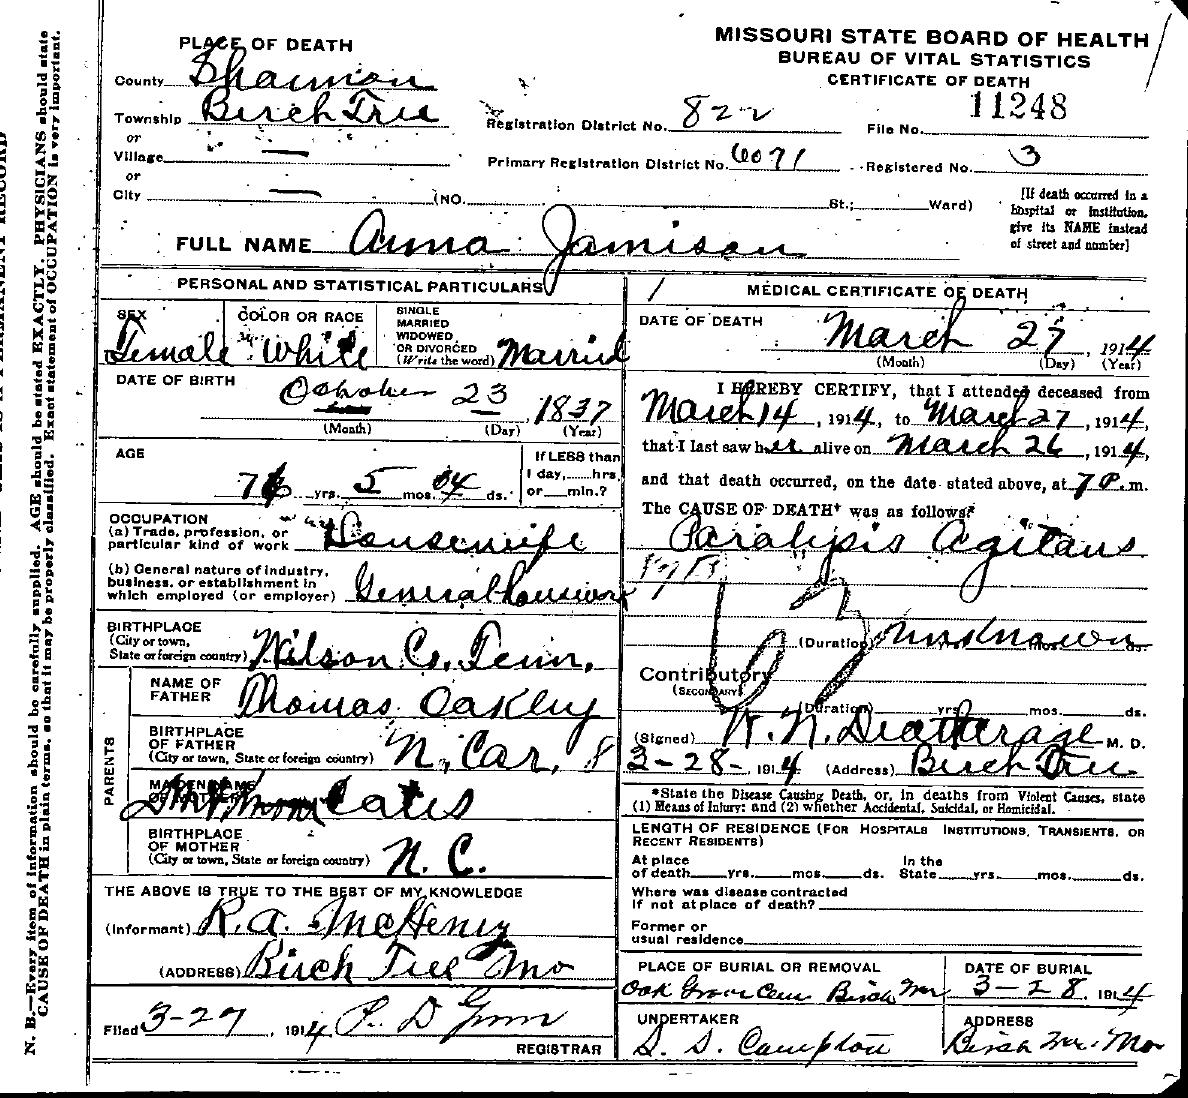 MISSOURI STATE BOARD OF HEALTH
BUREAU OF VITAL STATISTICS
CERTIFICATE OF DEATH
PLACE OF DEATH
County Shannon
Township Birch Tree
or
Village —
or
City — (NO. St.; Ward)
Registration District No. 822
File No. 11248
Primary Registration District No. 6071 Registered No. 3
[If death occurred in a
hospital or institution,
give its NAME instead
of street and number]
FULL NAME Anna Jamison
PERSONAL AND STATISTICAL PARTICULARS
SEX
Female
COLOR OR RACE
White
SINGLE
MARRIED
WIDOWED
OR DIVORCED
(Write the word) Married
DATE OF BIRTH
October 23, 1837
(Month) (Day) (Year)
AGE
76 yrs. 5 mos. 04 ds.
If LESS than
1 day, hrs.
or min.?
OCCUPATION
(a) Trade, profession, or
particular kind of work Housewife
(b) General nature of industry,
business, or establishment in
which employed (or employer) General housework
BIRTHPLACE
(City or town,
State or foreign country) Wilson Co. Tenn.
PARENTS
NAME OF
FATHER Thomas Oakley
BIRTHPLACE
OF FATHER
(City or town, State or foreign country) N. Car.
MAIDEN NAME
OF MOTHER Cates
BIRTHPLACE
OF MOTHER
(City or town, State or foreign country) N. C.
THE ABOVE IS TRUE TO THE BEST OF MY KNOWLEDGE
(Informant) R. A. McHenry
(ADDRESS) Birch Tree Mo
Filed 3-27, 1914 P. D. Gum
REGISTRAR
MEDICAL CERTIFICATE OF DEATH
DATE OF DEATH
March 27, 1914
(Month) (Day) (Year)
I HEREBY CERTIFY, that I attended deceased from
March 14, 1914, to March 27, 1914,
that I last saw her alive on March 26, 1914,
and that death occurred, on the date stated above, at 7 P. m.
The CAUSE OF DEATH* was as follows:
Paralysis Agitans
(Duration) unknown yrs. mos. ds.
Contributory
(SECONDARY)
(Duration) yrs. mos. ds.
(Signed) W. N. Deatherage M. D.
3-28-, 1914 (Address) Birch Tree
*State the Disease Causing Death, or, in deaths from Violent Causes, state
(1) Means of Injury; and (2) whether Accidental, Suicidal, or Homicidal.
LENGTH OF RESIDENCE (FOR HOSPITALS INSTITUTIONS, TRANSIENTS, OR
RECENT RESIDENTS)
At place
of death yrs. mos. ds.
In the
State yrs. mos. ds.
Where was disease contracted
if not at place of death?
Former or
usual residence
PLACE OF BURIAL OR REMOVAL
Oak Grove Cem Birch Tree
DATE OF BURIAL
3-28, 1914
UNDERTAKER
S. S. Campton
ADDRESS
Birch Tree Mo
N. B.—Every item of information should be carefully supplied. AGE should be stated EXACTLY. PHYSICIANS should state
CAUSE OF DEATH in plain terms, so that it may be properly classified. Exact statement of OCCUPATION is very important.